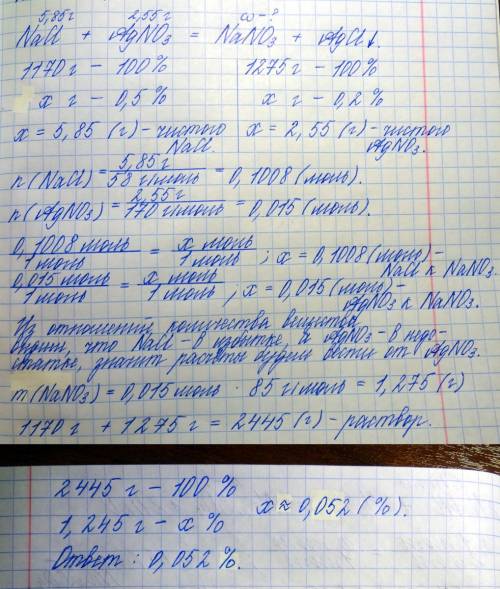 5,85г 2,55г ω-?
NaCl + AgNO₃ = NaNO₃ + AgCl↓.
1170г – 100% 1275г – 100%
x г – 0,5% x г – 0,2%
x = 5,85 (г) – чистого NaCl. x = 2,55 (г) – чистого AgNO₃.
n(NaCl) = 5,85г / 58 г/моль = 0,1008 (моль).
n(AgNO₃) = 2,55г / 170 г/моль = 0,015 (моль).
0,1008 моль / 1 моль = x моль / 1 моль ; x = 0,1008 (моль) – NaCl к NaNO₃.
0,015 моль / 1 моль = x моль / 1 моль ; x = 0,015 (моль) – AgNO₃ к NaNO₃.
Из отношений количества вещества
видим, что NaCl – в избытке, а AgNO₃ – в недо-
статке, значит расчёты будем вести от AgNO₃.
m(NaNO₃) = 0,015 моль · 85 г/моль = 1,275 (г)
1170 г + 1275 г = 2445 (г) – раствор.
2445 г – 100 %
1,245 г – x % x ≈ 0,052 (%).
Ответ: 0,052 %.